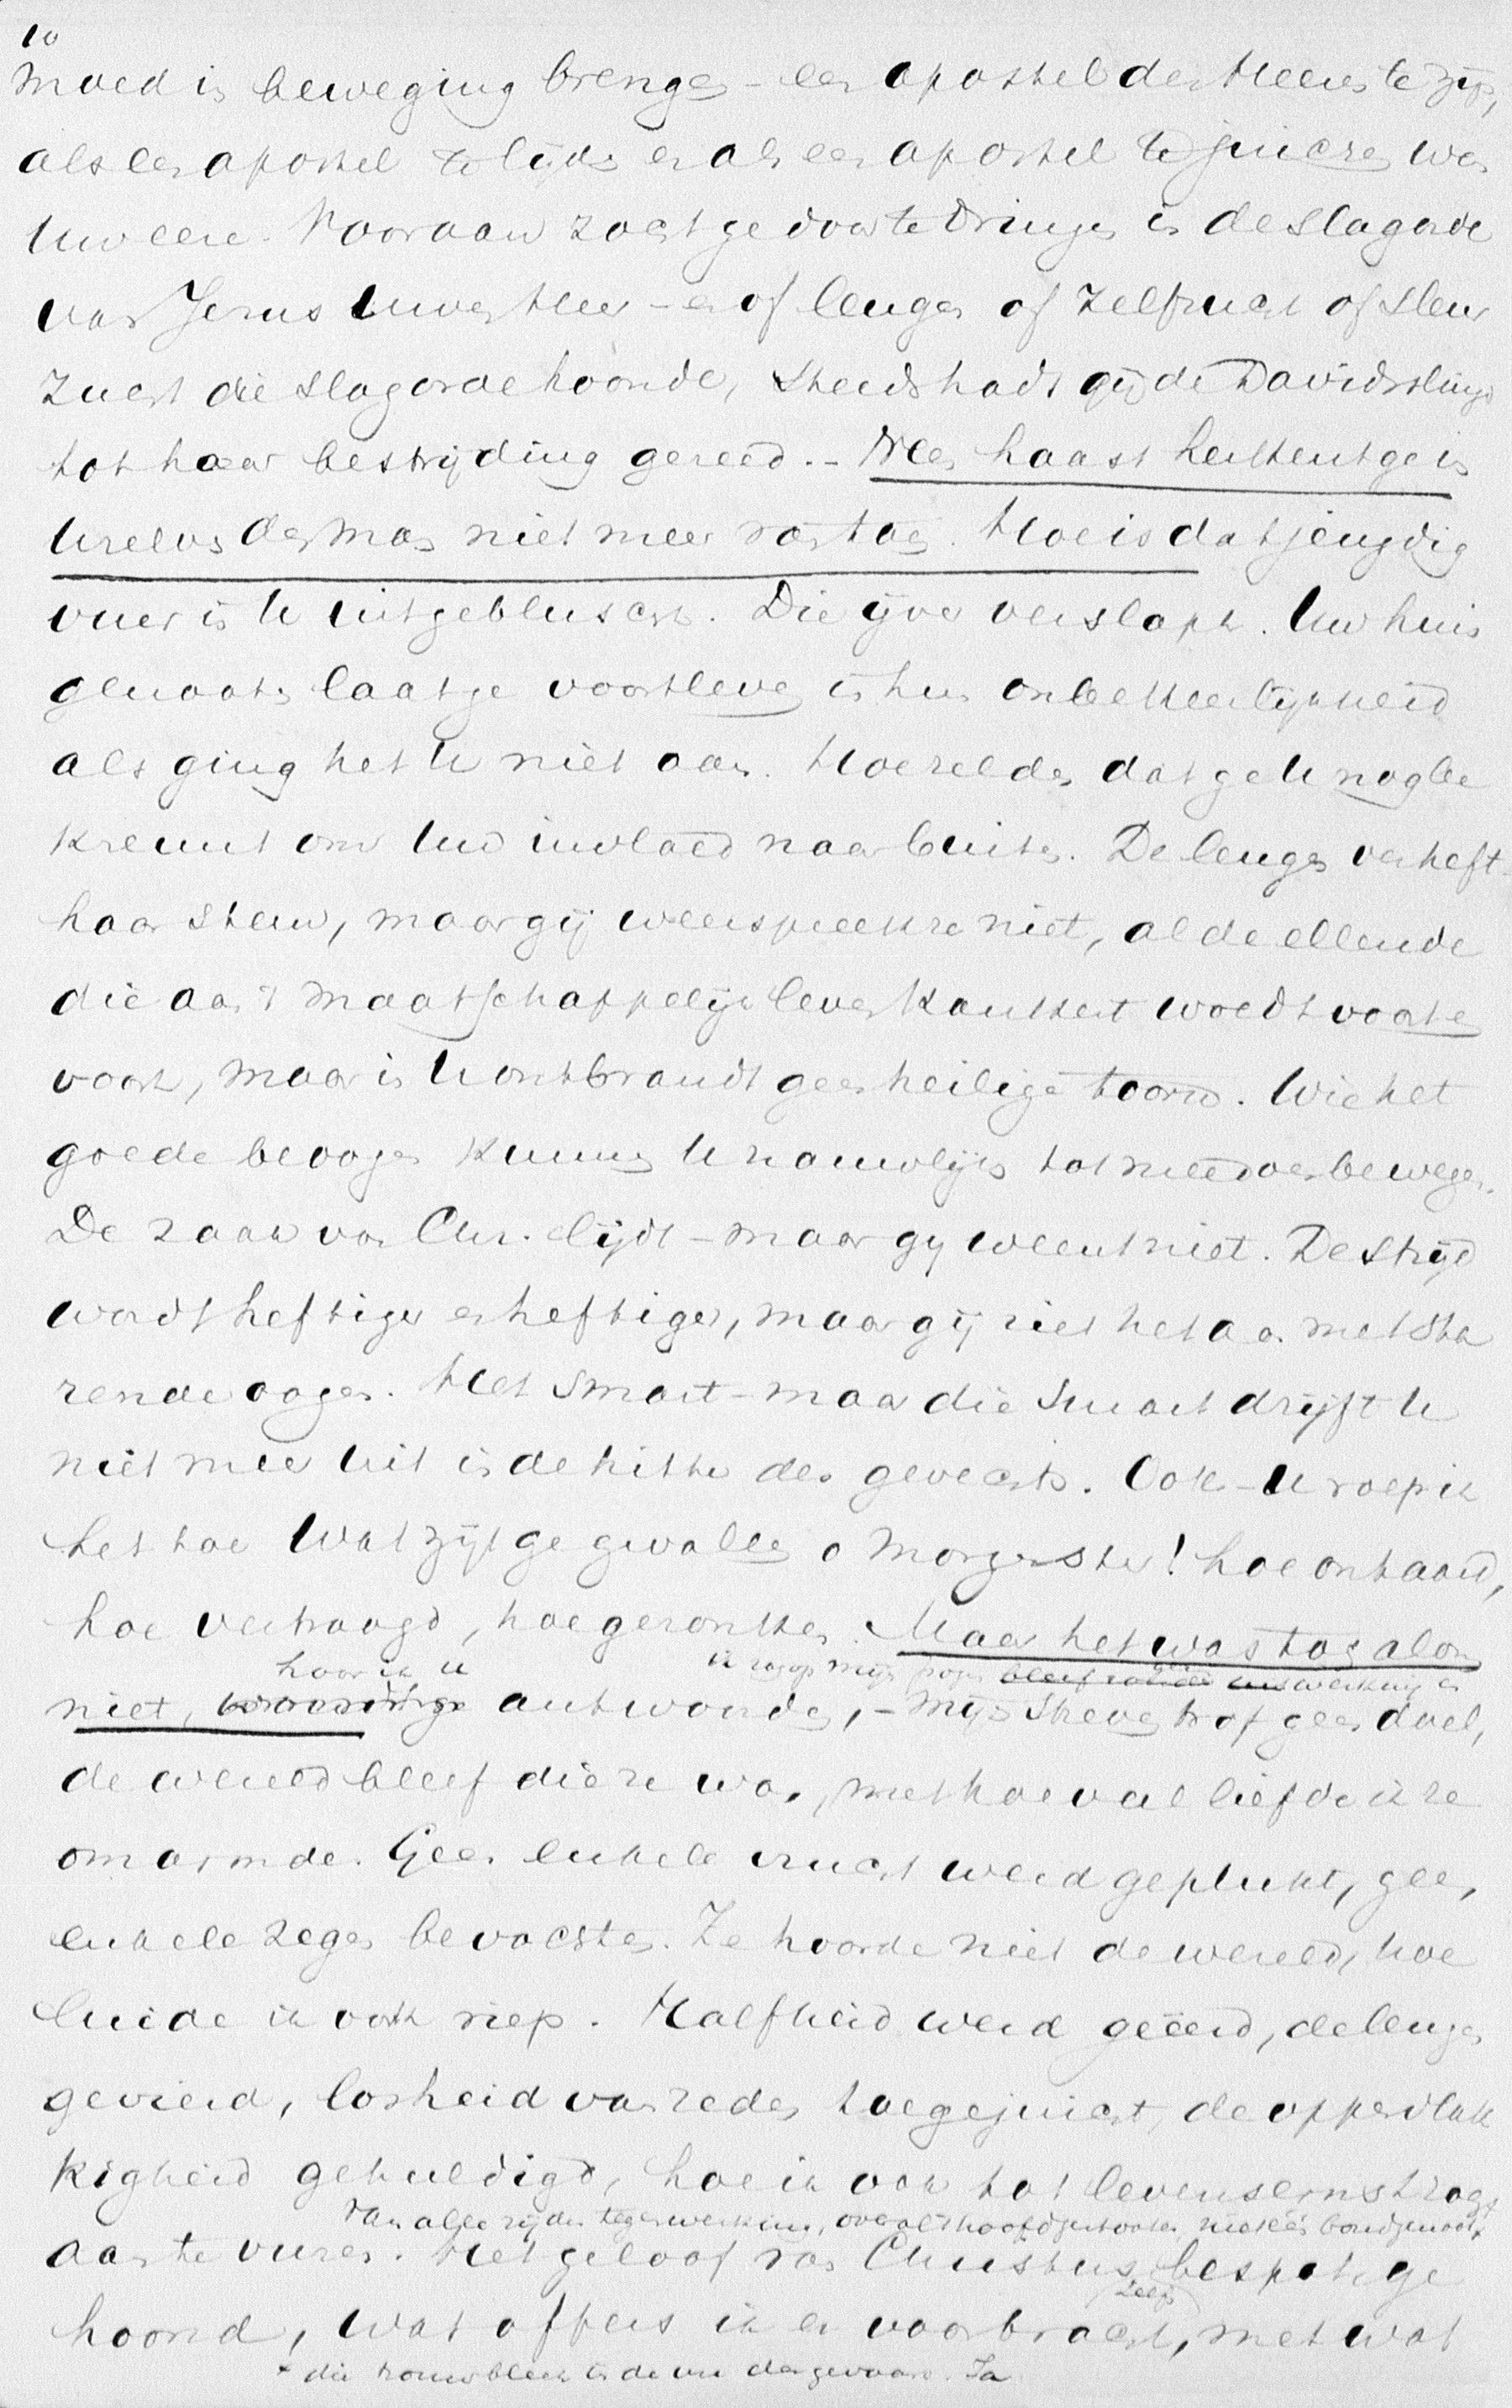 10
moed in beweging brengen - een apostel des Heeren te zijn,
als een apostel te lijden en als een apostel te juichen was
Uw eere. Vooraan zocht ge door te dringen in de slagorde
van Jezus Uwen Heer - en of leugen of zelfzucht of sleur
zucht die slagorde hoonde, steeds hadt gij de Davidsslinger
tot haar bestrijding gereed. - Nu haast herkent ge in
U zelven den man niet meer van toen. Hoe is dat jeugdig
vuur in U uitgebluscht. Die ijver verslapt. Uw huis
genooten laat ge voortleven in hun onbekeerlijkheid
als ging het U niet aan. Hoe zelden dat ge U nog be
kreunt om Uw invloed naar buiten. De leugen verheft
haar stem, maar gij weerspreekt ze niet, al de ellende
die aan 't maatschappelijk leven kankert woedt voort en
voort, maar in U ontbrandt geen heilige toorn. Wie het
goede beoogen kunnen U nauwlijks tot meedoen bewegen.
De zaak van Chr. lijdt - maar gij weent niet. De strijd
wordt heftiger en heftiger, maar gij ziet het aan met sta
rende oogen. Met smart - maar die smart drijft U
niet meer uit in de hitte des gevechts. Ook U roep ik
het toe Wat zijt ge gevallen o Morgenster! hoe ontaard,
hoe vertraagd, hoe gezonken. Maar het was toen alzoo
hoor ik u ik zag op mijn pogen bleef zonder uitwerking en
niet, antwoorden, - Mijn streven trof geen doel,
de wereld bleef die ze was, met hoeveel liefde ik ze
omarmde. Geen enkele vrucht werd geplukt, geen
enkele zege bevochten. Ze hoorde niet de wereld, hoe
luide ik ook riep. Halfheid werd geëerd, de leugen
gevierd, losheid van zeden toegejuicht, de oppervlak
kigheid gehuldigd, hoe ik ook tot levensernst zocht
Van alle zijden tegenwerking, overal
aan te vuren. Het geloof van Christus bespot, ge
zelfs
hoond, wat offers ik er voor bracht, met wat
* die trouw bleek in de ure des gevaars. Ja